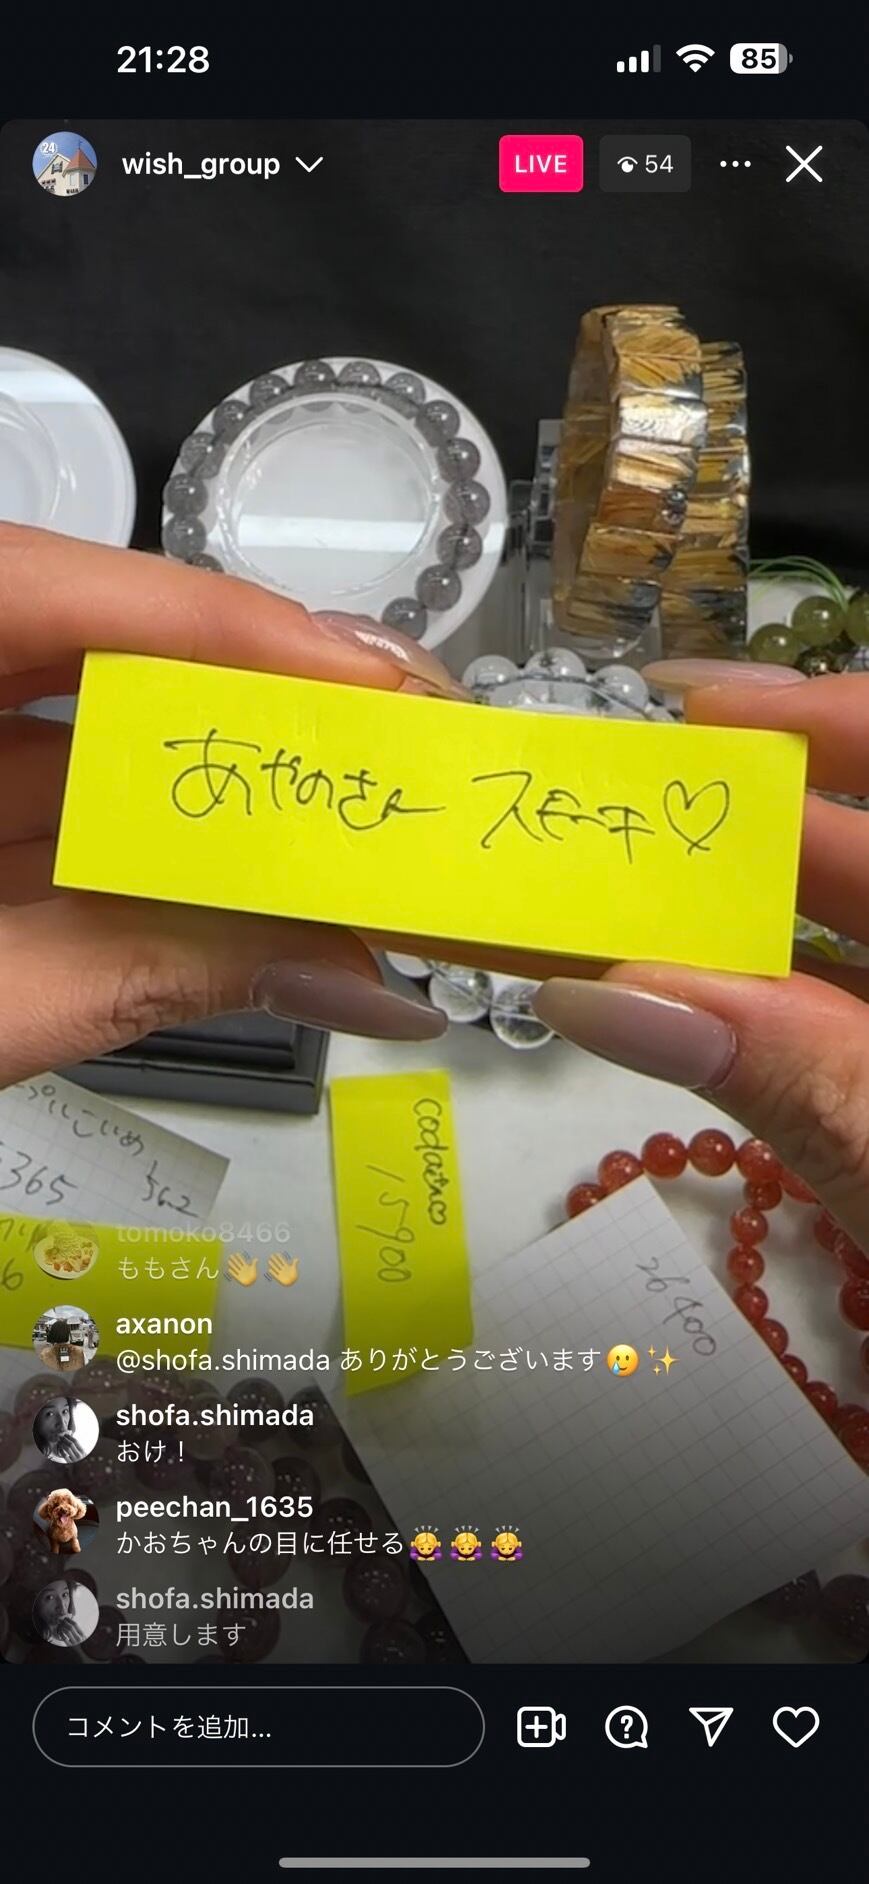 21:28
85
24
wish_group
LIVE
54
あやのさん スモーキ♡
プルこいめ
365
codaさん♡
15900
26400
tomoko8466
ももさん👋👋
axanon
@shofa.shimada ありがとうございます🥲✨
shofa.shimada
おけ！
peechan_1635
かおちゃんの目に任せる🙇‍♀️🙇‍♀️🙇‍♀️
shofa.shimada
用意します
コメントを追加...